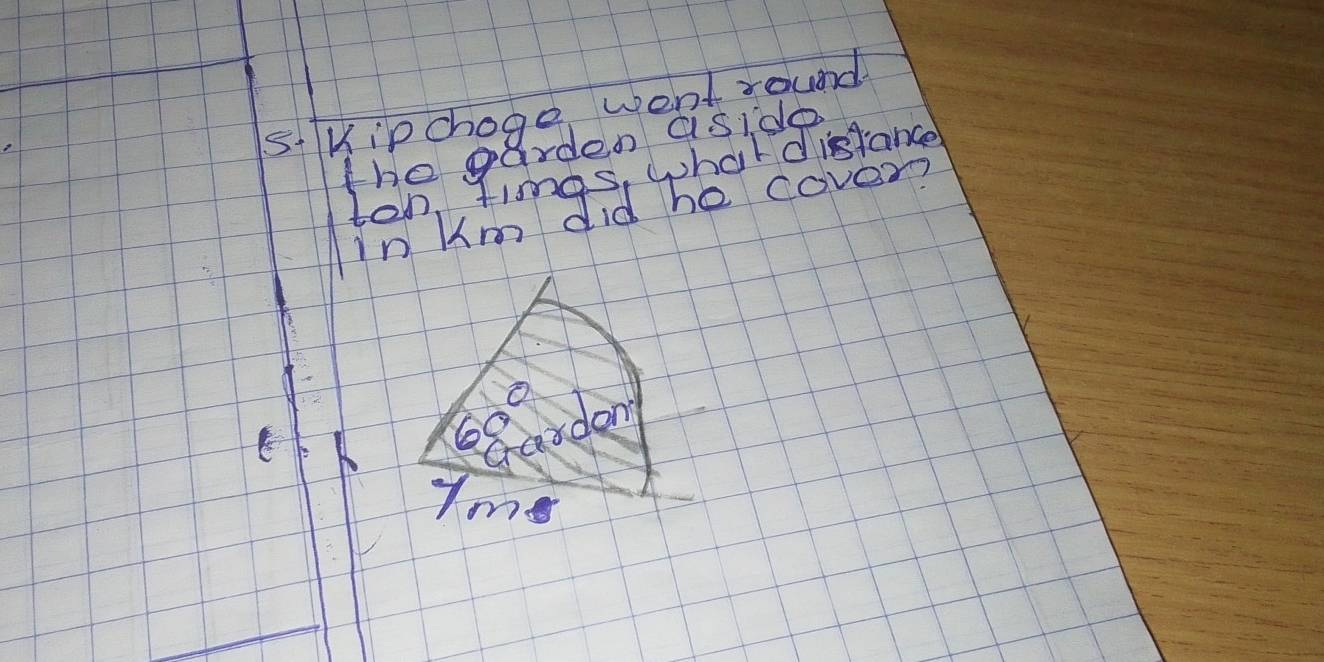 5. Kipchoge went round
the garden aside
ten times, what distance
in Km did he cover?
60°
Garden
7m
6.